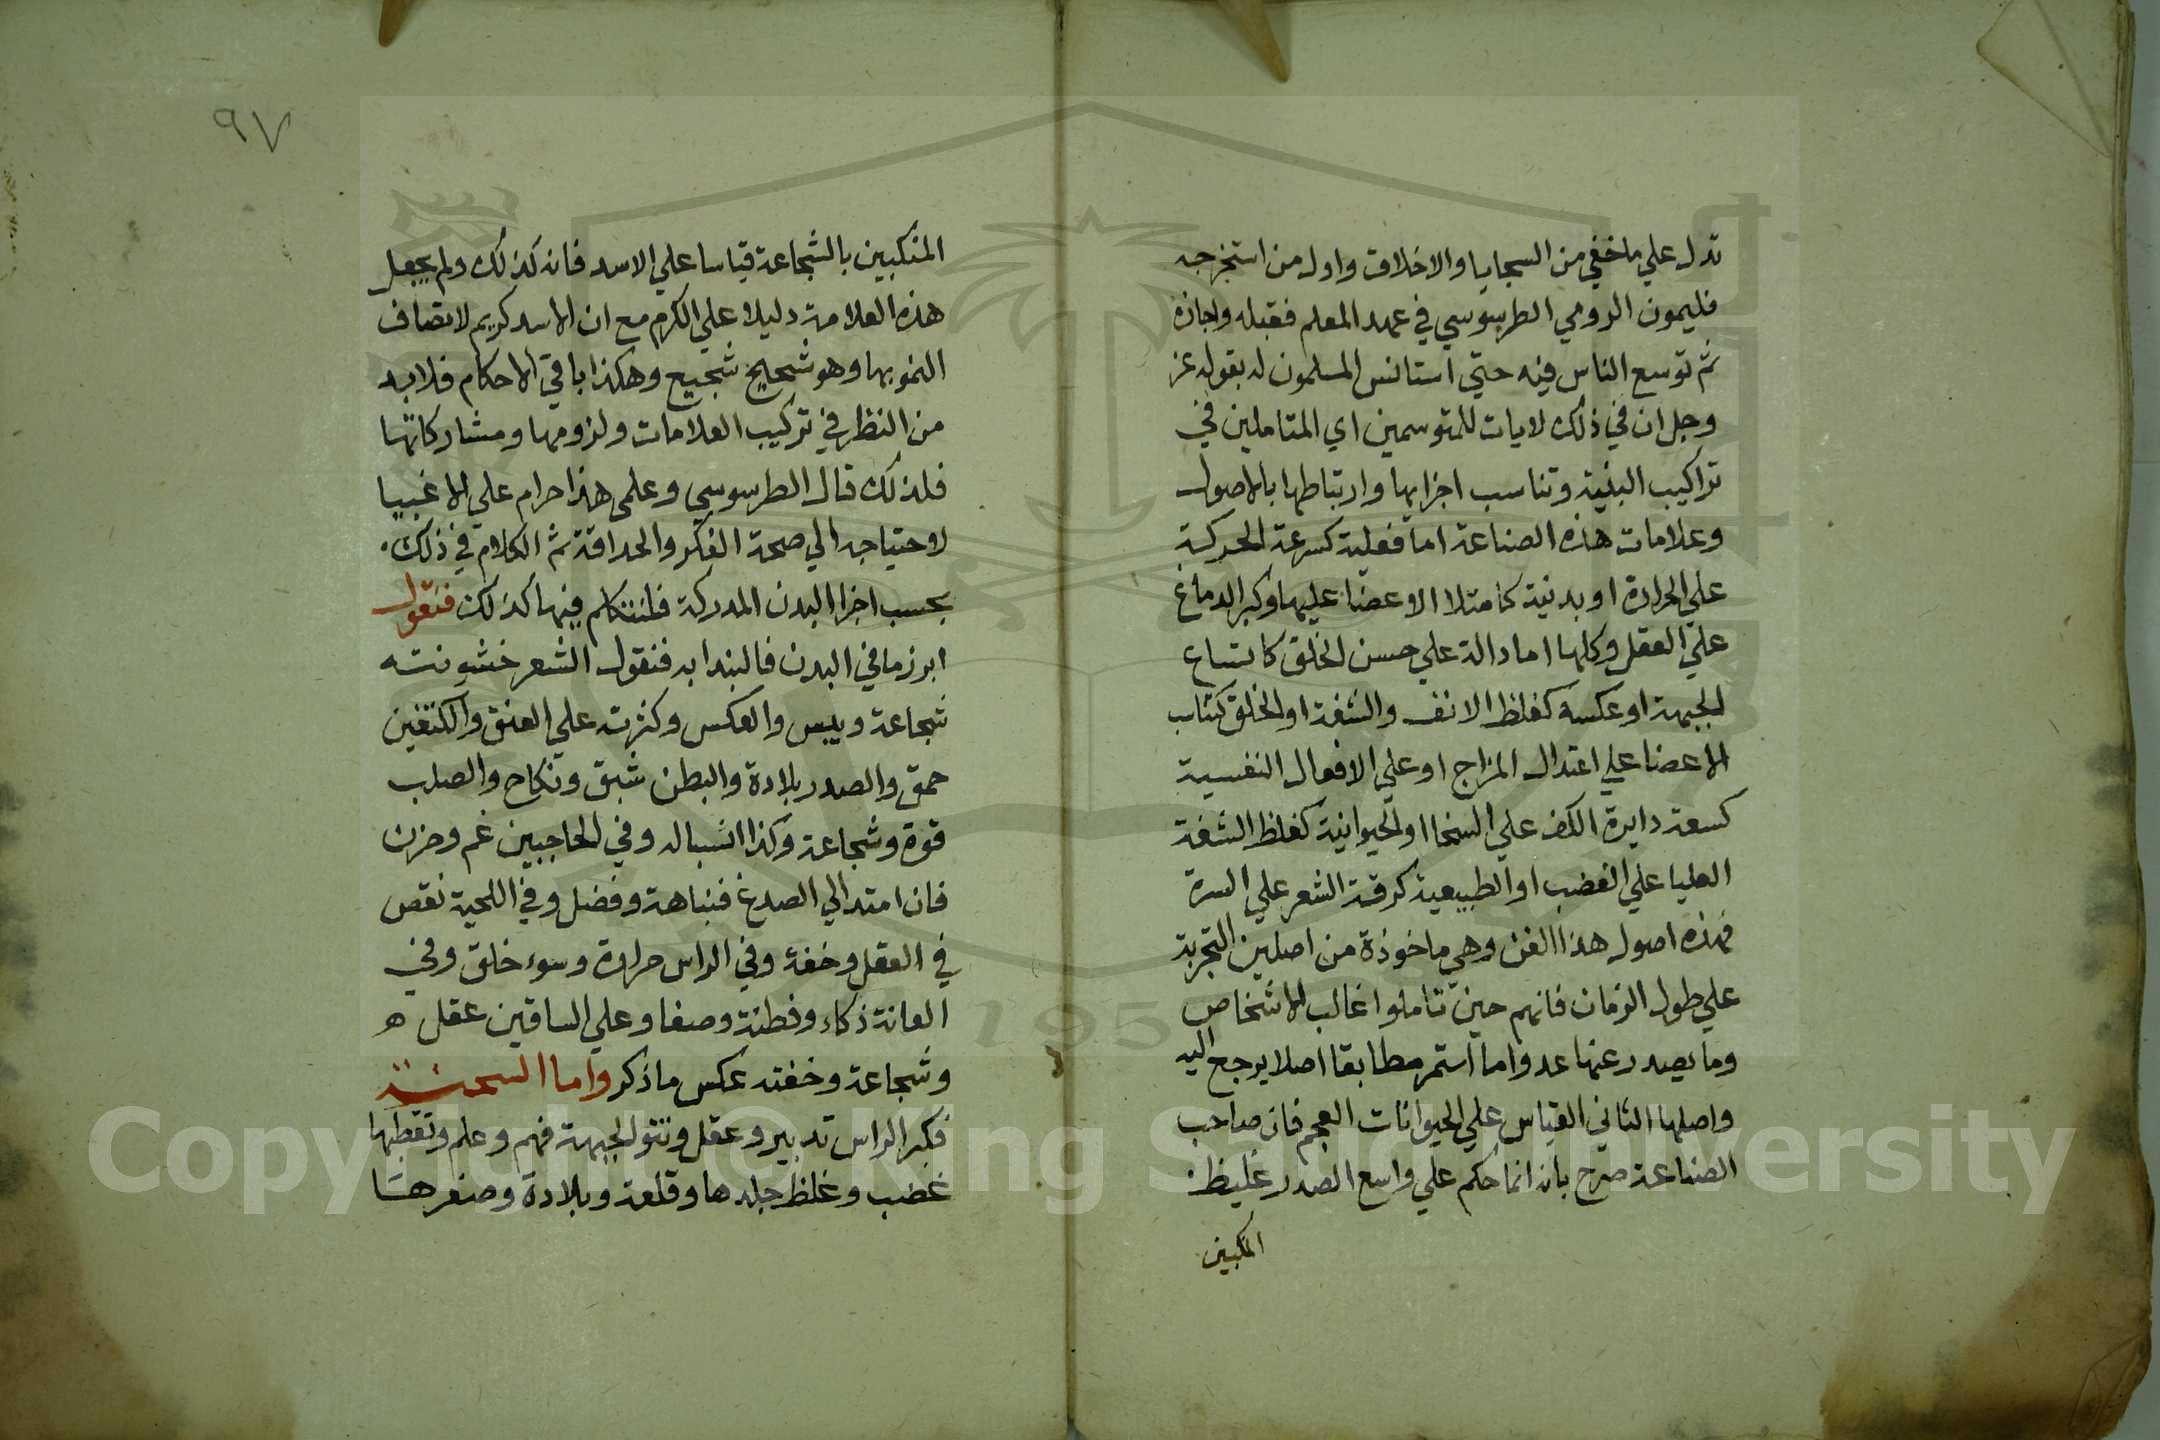 تدل علي ما خفي من السجايا والاخلاق واول من استخرجه
فليمون الرومي الطرسوسي في عهد المعلم فقبله واجازه
ثم توسع الناس فيه حتي استانس المسلمون له بقوله عز
وجل ان في ذلك لايات للمتوسمين اي المتاملين في
تراكيب البنية وتناسب اجزايها وارتباطها بالاصول
وعلامات هذه الصناعة اما فعلية كسرعة الحركة
علي الحرارة او بدنية كامتلا الاعضا عليها وكبر الدماغ
علي العقل وكلها اما دالة علي حسن الخلق كاتساع
الجبهة او عكسه كغلظ الانف والشفة او الخلق كتناسب
الاعضا علي اعتدال المزاج او علي الافعال النفسية
كسعة دايرة الكف علي السخا او الحيوانية كغلظ الشفة
العليا علي الغضب او الطبيعية كرقة الشعر علي السرة
فهذه اصول هذا الفن وهي ماخوذة من اصلين التجربة
علي طول الزمان فانهم حين تاملوا غالب الاشخاص
وما يصدر عنها عدوا ما استمر مطابقا اصلا يرجع اليه
واصلها الثاني القياس علي الحيوانات العجم فان صاحب
الصناعة صرح بانه انما حكم علي واسع الصدر غليظ
المنكبين
٩٧
المنكبين بالشجاعة قياسا علي الاسد فانه كذلك ولم يجعل
هذه العلامة دليلا علي الكرم مع ان الاسد كريم لاتصاف
النمر بها وهو شحيح شجيع وهكذا باقي الاحكام فلا بد
من النظر في تركيب العلامات ولزومها ومشاركاتها
فلذلك قال الطرسوسي وعلمي هذا حرام علي الاغبيا
لاحتياجه الي صحة الفكر والحداقة ثم الكلام في ذلك
بحسب اجزا البدن المدركة فلنتكلم فيها كذلك فنقول
ابرز ما في البدن فالبندا به فنقول الشعر خشونته
شجاعة ويبس والعكس وكثرته علي العنق والكتفين
حمق والصدر بلادة والبطن شبق ونكاح والصلب
قوة وشجاعة وكذا السبال وفي الحاجبين غم وحزن
فان امتد الي الصدغ فنباهة وفضل وفي اللحية نقص
في العقل وخفة وفي الراس حرارة وسوء خلق وفي
العانة ذكاء وفطنة وصفا وعلي الساقين عقل ه
وشجاعة وخفته عكس ما ذكر واما السحنة
فكبر الراس تدبير وعقل ونتو الجبهة فهم وعلم وتقطبها
غضب وغلظ جلدها وقلعة وبلادة وصغرها
Copyright © King Saud University
1957